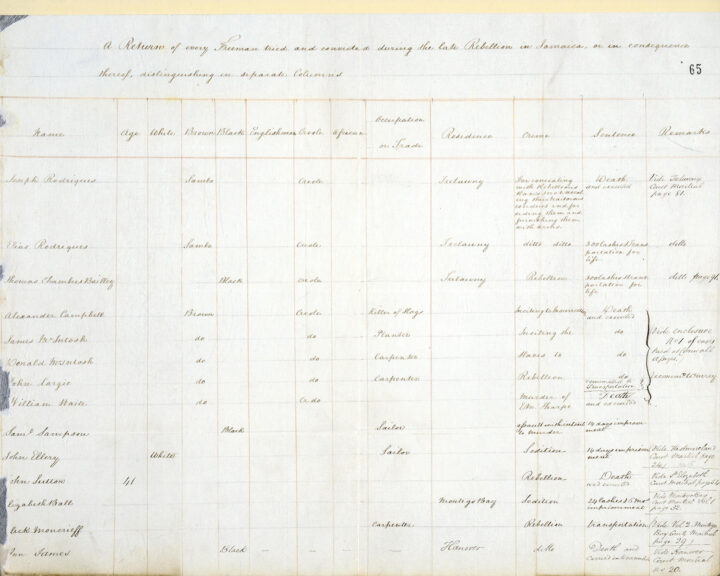 A Return of every Freeman tried and convicted during the late Rebellion in Jamaica, or in consequence
thereof, distinguishing in separate Columns
65
Name Age White Brown Black Englishman Creole African Occupation or Trade Residence Crime Sentence Remarks
Joseph Rodriques Sambo Creole Trelawny For concealing Death Vide Trelawny
with Rebellious and executed Court Martial
page 81.
conduct and for
aiding them and
furnishing them
with arms.
Elias Rodriques Sambo Creole Trelawny ditto ditto 300 lashes & Trans ditto
portation for
life
Thomas Chambers Black Creole Trelawny Rebellion 300 lashes & trans ditto page 91.
portation for
life
Alexander Campbell Brown Creole Killer of Hogs Death
and executed
James McIntosh do do Planter Inciting the do Vide enclosure
No 1 of
Donald McIntosh do do Carpenter Slaves to do
John Largie do do Carpenter Rebellion do
commuted to
Transportation
William Waite do Cr do Murder of Death
Wm Sharpe and executed
Saml. Sampson Black Sailor assault with intent 14 days imprison
to murder ment
John Ellery White Sailor Sedition 14 days imprison Vide Westmoreland
ment Court Martial page
41 Rebellion Death Vide St Elizabeth
and executed Court Martial page
Elizabeth Ball Montego Bay Sedition 24 lashes & 5 mos
imprisonment page 32.
Jack Moncrieff Carpenter Rebellion transportation Vide Vol 2. Montego
Bay Court Martial
page 29
Ann James Black Hanover ditto Death and Vide Hanover
Court Martial
No 20.